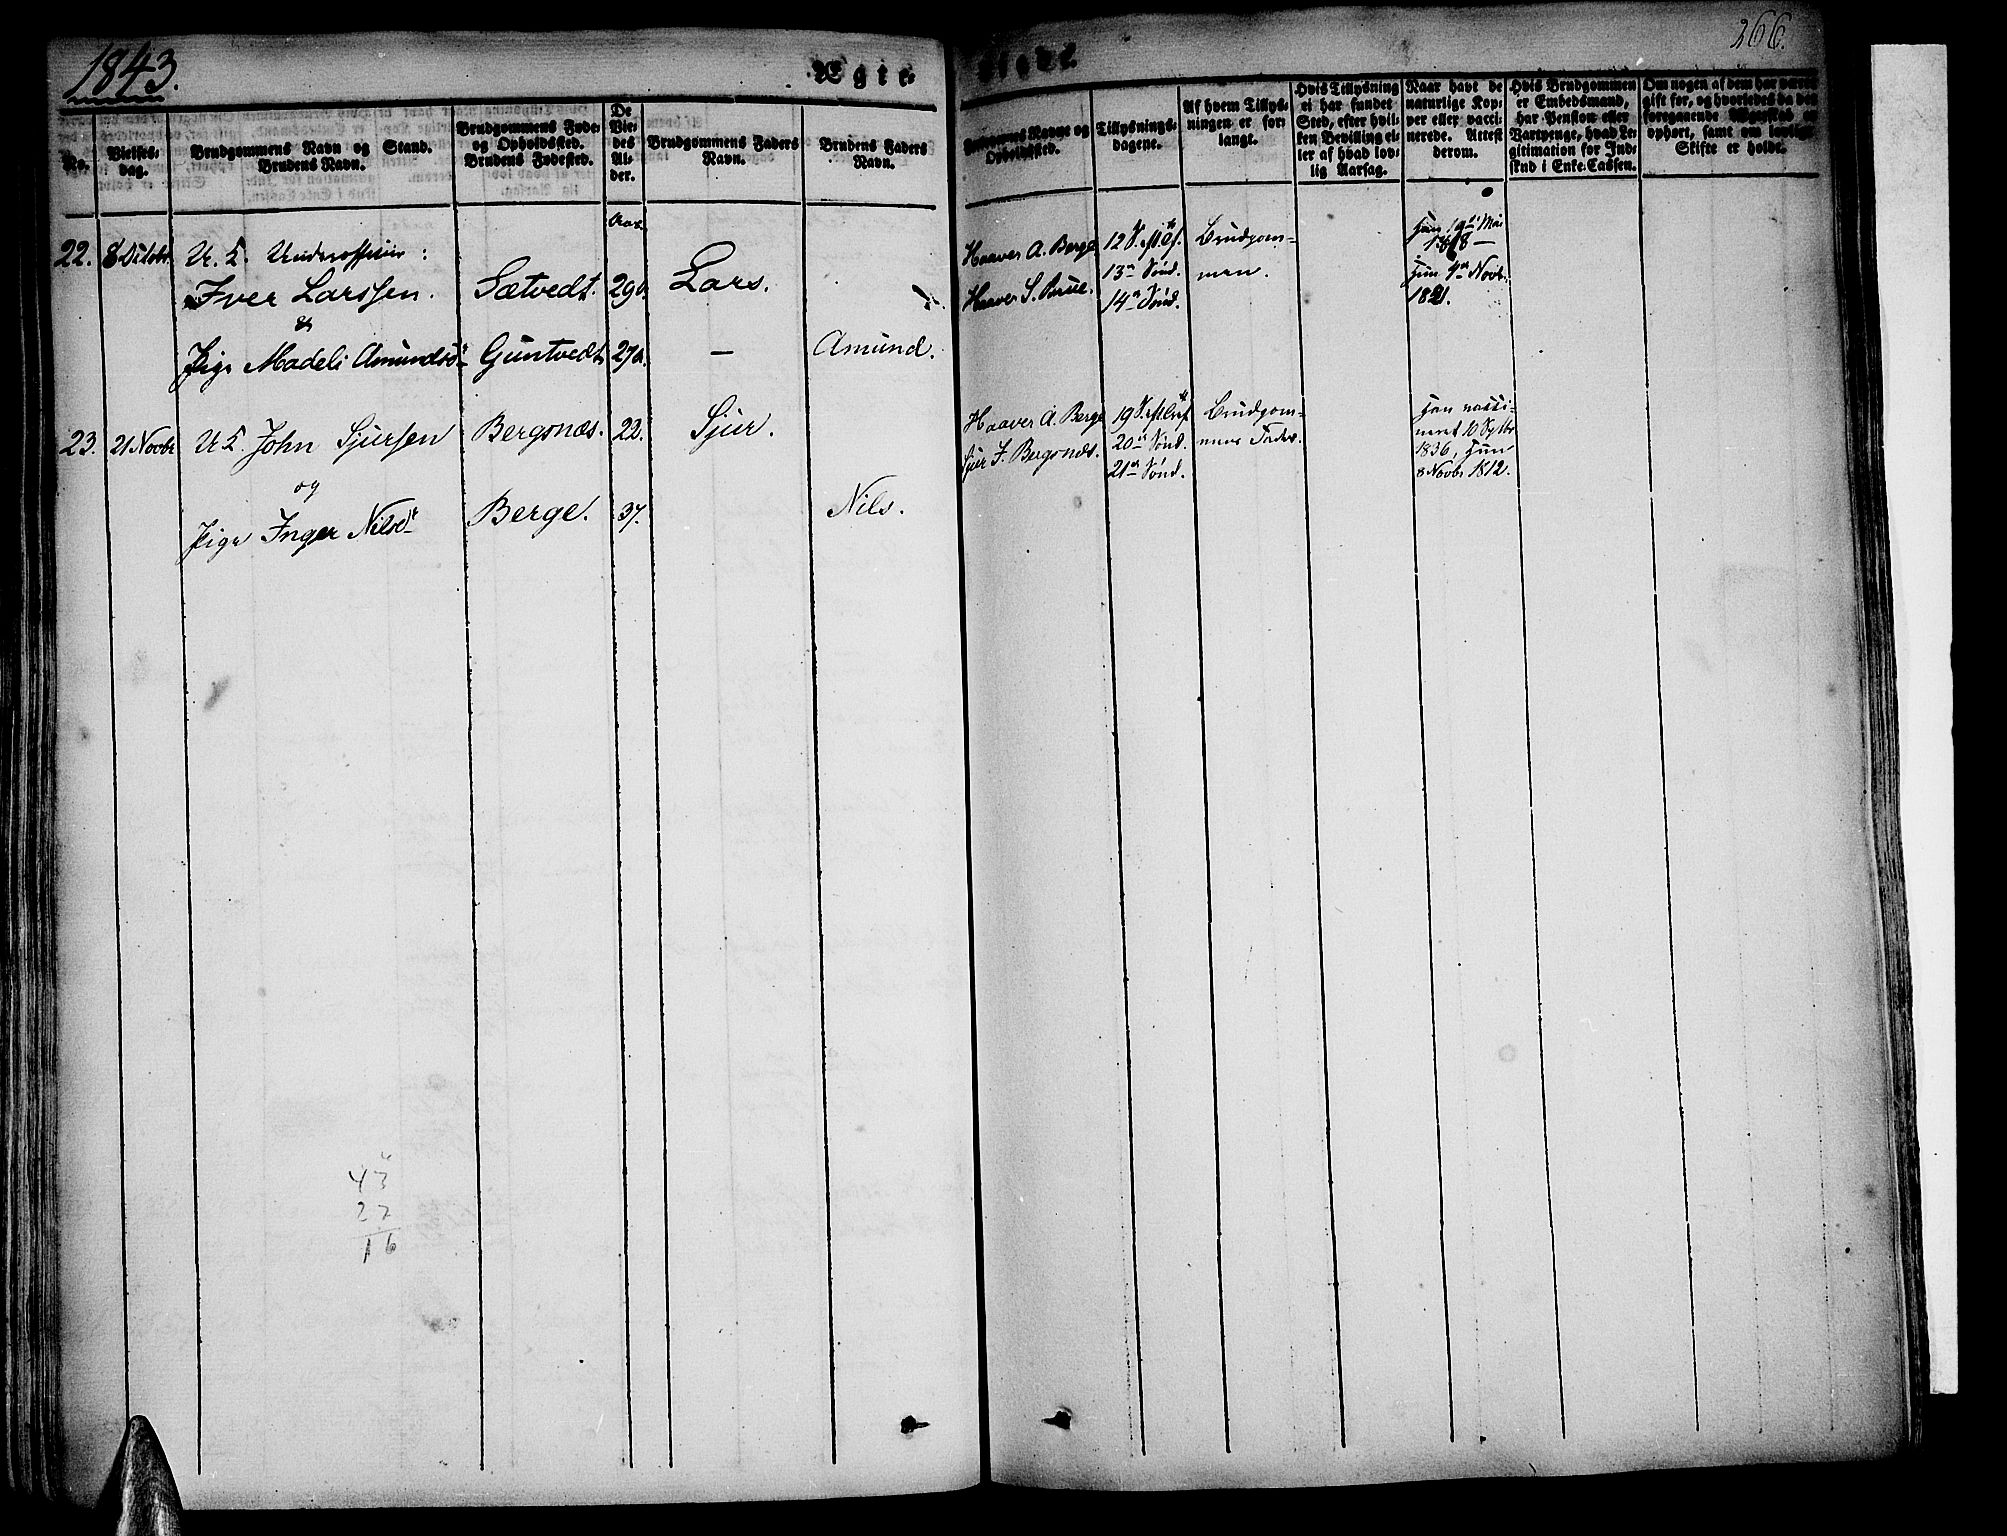 1843.
Ægte-
Viede.
266.
No.
Vielses-
dag.
Brudgommens Navn og Stand.
Brudens Navn.
Brudgommens Føde-
og Opholdssted.
Brudens Fødested.
De
Vie-
des
Al-
der.
Brudgommens Faders
Navn.
Brudens Faders
Navn.
Forlovernes Navne og
Opholdssted.
Tillysnings-
dagene.
Af hvem Tillys-
ningen er for-
langt.
Hvis Tillysning
ei har fundet
Sted, efter hvil-
ken Bevilling el-
ler af hvad lov-
lig Aarsag.
Naar havt de
naturlige Kop-
per eller vacci-
nerede. Attest
derom.
Hvis Brudgommen
er Embedsmand,
har Pension eller
Vartpenge, hvad Le-
gitimation for Ind-
skud i Enke-Cassen.
Om nogen af dem har været
gift før, og hvorledes da det
foregaaende Ægteskab er
ophørt, samt om lovligt
Skifte er holdt.
Aar.
22. 8 Octobr U. K. Underofficier:
Iver Larssen. Sætvedt. 29a. Lars.
&
Pige Madeli Amundsdr Guntvedt 27a. — Amund.
Haaver A. Berge 12 S. e. Tref. Brudgom-
Haaver S. Brue. 13de Sønd. men.
14de Sønd.
han 19de Mai
1818 —
hun 4de Novb.
1821.
23. 21 Novbr U. K. John Sjursen Bergsnæs. 22. Sjur.
og
Pige Inger Nilsdr Berge. 37. Nils.
Haaver A. Berge 19 S. e. Tref Brudgom-
Sjur J. Bergsnæs. 20de Sønd. mens Fader.
21de Sønd.
han vacci-
neret 10 Septbr
1836, hun
8 Novbr 1812.
43
27
16